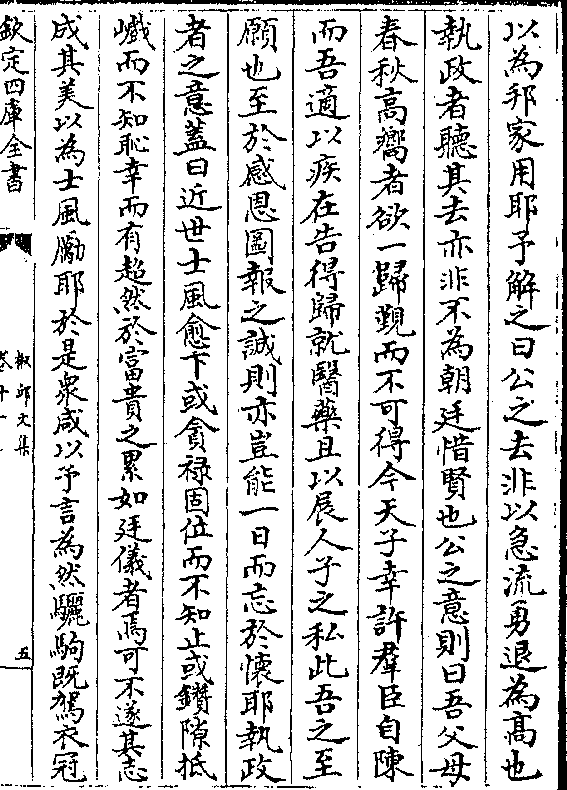 以為邦家用耶予解之曰公之去非以急流勇退為高也
執政者聽其去亦非不為朝廷惜賢也公之意則曰吾父母
春秋髙嚮者欲一歸覲而不可得今天子幸許羣臣自陳
而吾適以疾在告得歸就醫藥且以展人子之私此吾之至
願也至於感恩圖報之誠則亦豈能一日而忘於懷耶執政
者之意蓋曰近世士風愈下或貪祿固位而不知止或鑽隙抵
巇而不知恥幸而有超然於富貴之累如廷儀者焉可不遂其志
成其美以為士風勵耶於是衆咸以予言為然驪駒既駕衣冠
欽定四庫全書
椒邱文集
卷十一
五